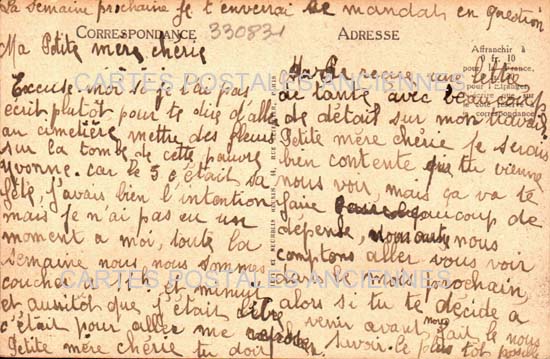 La semaine prochaine je t'enverrai le mandat en question
CORRESPONDANCE
330831
ADRESSE
Affranchir à
0 fr. 10
pour la France,
pour l'Etranger
correspondance
CARTES POSTALES ANCIENNES
CARTES POSTALES ANCIENNES
Ma Petite mère chérie
Excuse-moi si je t'ai pas
écrit plutôt pour te dire d'aller
au cimetière mettre des fleurs
sur la tombe de cette pauvre
Yvonne. car le 5 c'était sa
fête, j'avais bien l'intention
mais je n'ai pas eu un
moment a moi, toute la
semaine nous nous sommes
couchés a et minuit
et aussitôt que j'était
c'était pour aller me
Petite mère chérie tu doit
reçue une lettre
de tante avec beaucoup
de détail sur mon travail
Petite mère chérie je serais
bien contente que tu vienne
nous voir, mais ça va te
faire beaucoup de
dépense, nous
comptons aller vous voir
dans le mois prochain,
alors si tu te décide a
venir avant fait le nous
savoir le plus tôt possible